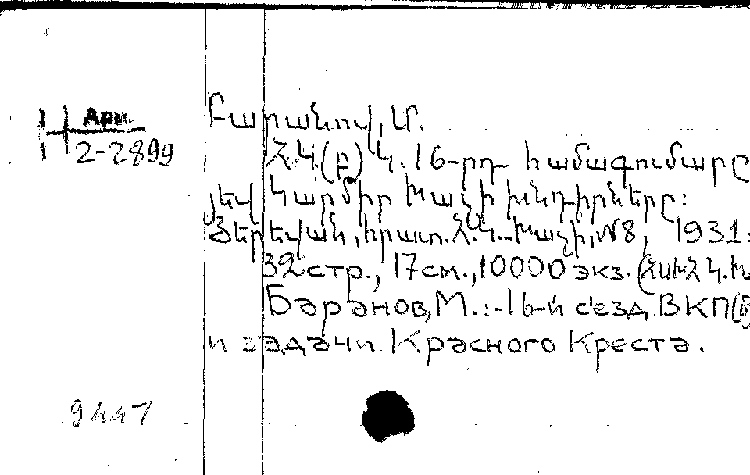 Арм.
2-2899
Բարանով, Մ.
ՀամԿ(բ)Կ. 16-րդ համագումարը
յեվ Կարմիր Խաչի խնդիրները:
Յերեվան, հրատ. Հ.Կ. Խաչի, №8, 1931:
32 стр., 17 см., 10000 экз.
Баранов, М.:-16-й сезд ВКП(б
и задачи Красного Креста.
9447